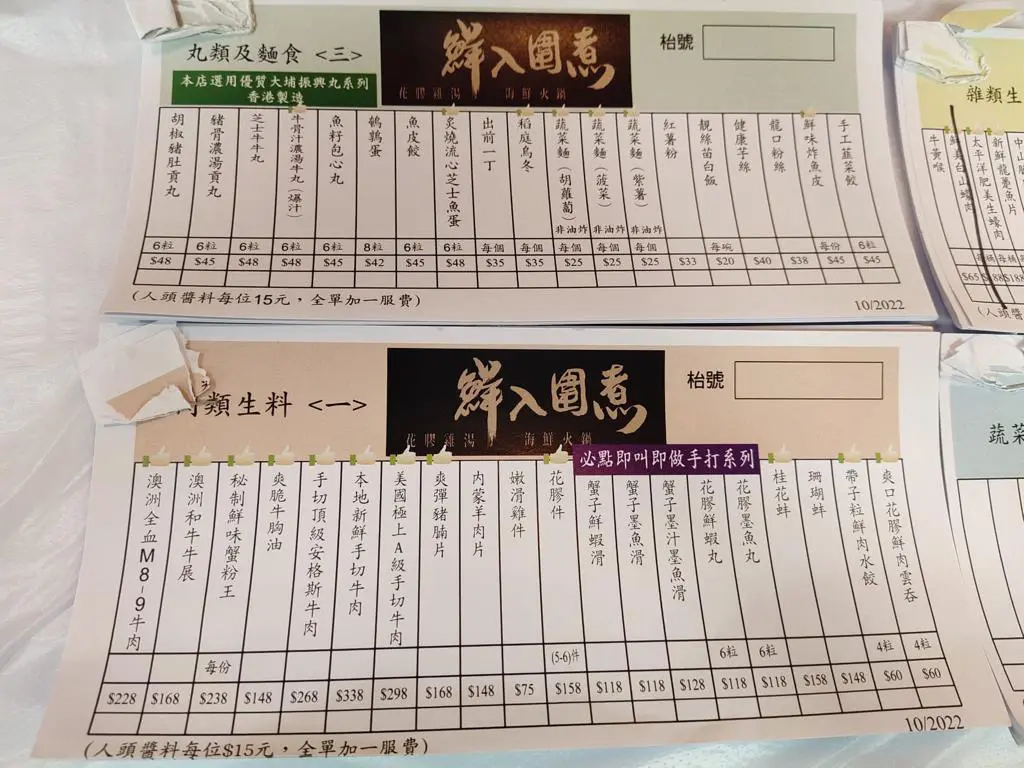 丸類及麵食 <三>
本店選用優質大埔振興丸系列
香港製造
鮮入圍煮
花膠雞湯
海鮮火鍋
枱號
胡椒豬肚貢丸
豬骨濃湯貢丸
芝士牛牛丸
牛骨汁濃湯牛丸(爆汁)
魚籽包心丸
鵪鶉蛋
魚皮餃
炙燒流心芝士魚蛋
出前一丁
稻庭烏冬
蔬菜麵(胡蘿蔔)
非油炸
蔬菜麵(菠菜)
非油炸
蔬菜麵(紫薯)
非油炸
紅薯粉
靚絲苗白飯
健康芋絲
龍口粉絲
鮮味炸魚皮
手工韮菜餃
6粒 6粒 6粒 6粒 6粒 8粒 6粒 6粒 每個 每個 每個 每個 每個 每碗 每份 6粒
$48 $45 $48 $48 $45 $42 $45 $48 $35 $35 $25 $25 $25 $33 $20 $40 $38 $45 $45
(人頭醬料每位15元，全單加一服費)
10/2022
雜類生
牛黃喉
太平洋肥美生蠔肉
新鮮龍躉魚片
$65
類生料 <一>
鮮入圍煮
花膠雞湯
海鮮火鍋
枱號
必點即叫即做手打系列
澳洲全血M8-9牛肉
澳洲和牛牛展
秘制鮮味蟹粉王
爽脆牛胸油
手切頂級安格斯牛肉
本地新鮮手切牛肉
美國極上A級手切牛肉
爽彈豬腩片
內蒙羊肉片
嫩滑雞件
花膠件
蟹子鮮蝦滑
蟹子墨魚滑
蟹子墨汁墨魚滑
花膠鮮蝦丸
花膠墨魚丸
桂花蚌
珊瑚蚌
帶子粒鮮肉水餃
爽口花膠鮮肉雲吞
每份 (5-6)件 6粒 6粒 4粒 4粒
$228 $168 $238 $148 $268 $338 $298 $168 $148 $75 $158 $118 $118 $128 $118 $118 $158 $148 $60 $60
(人頭醬料每位$15元，全單加一服費)
10/2022
蔬菜